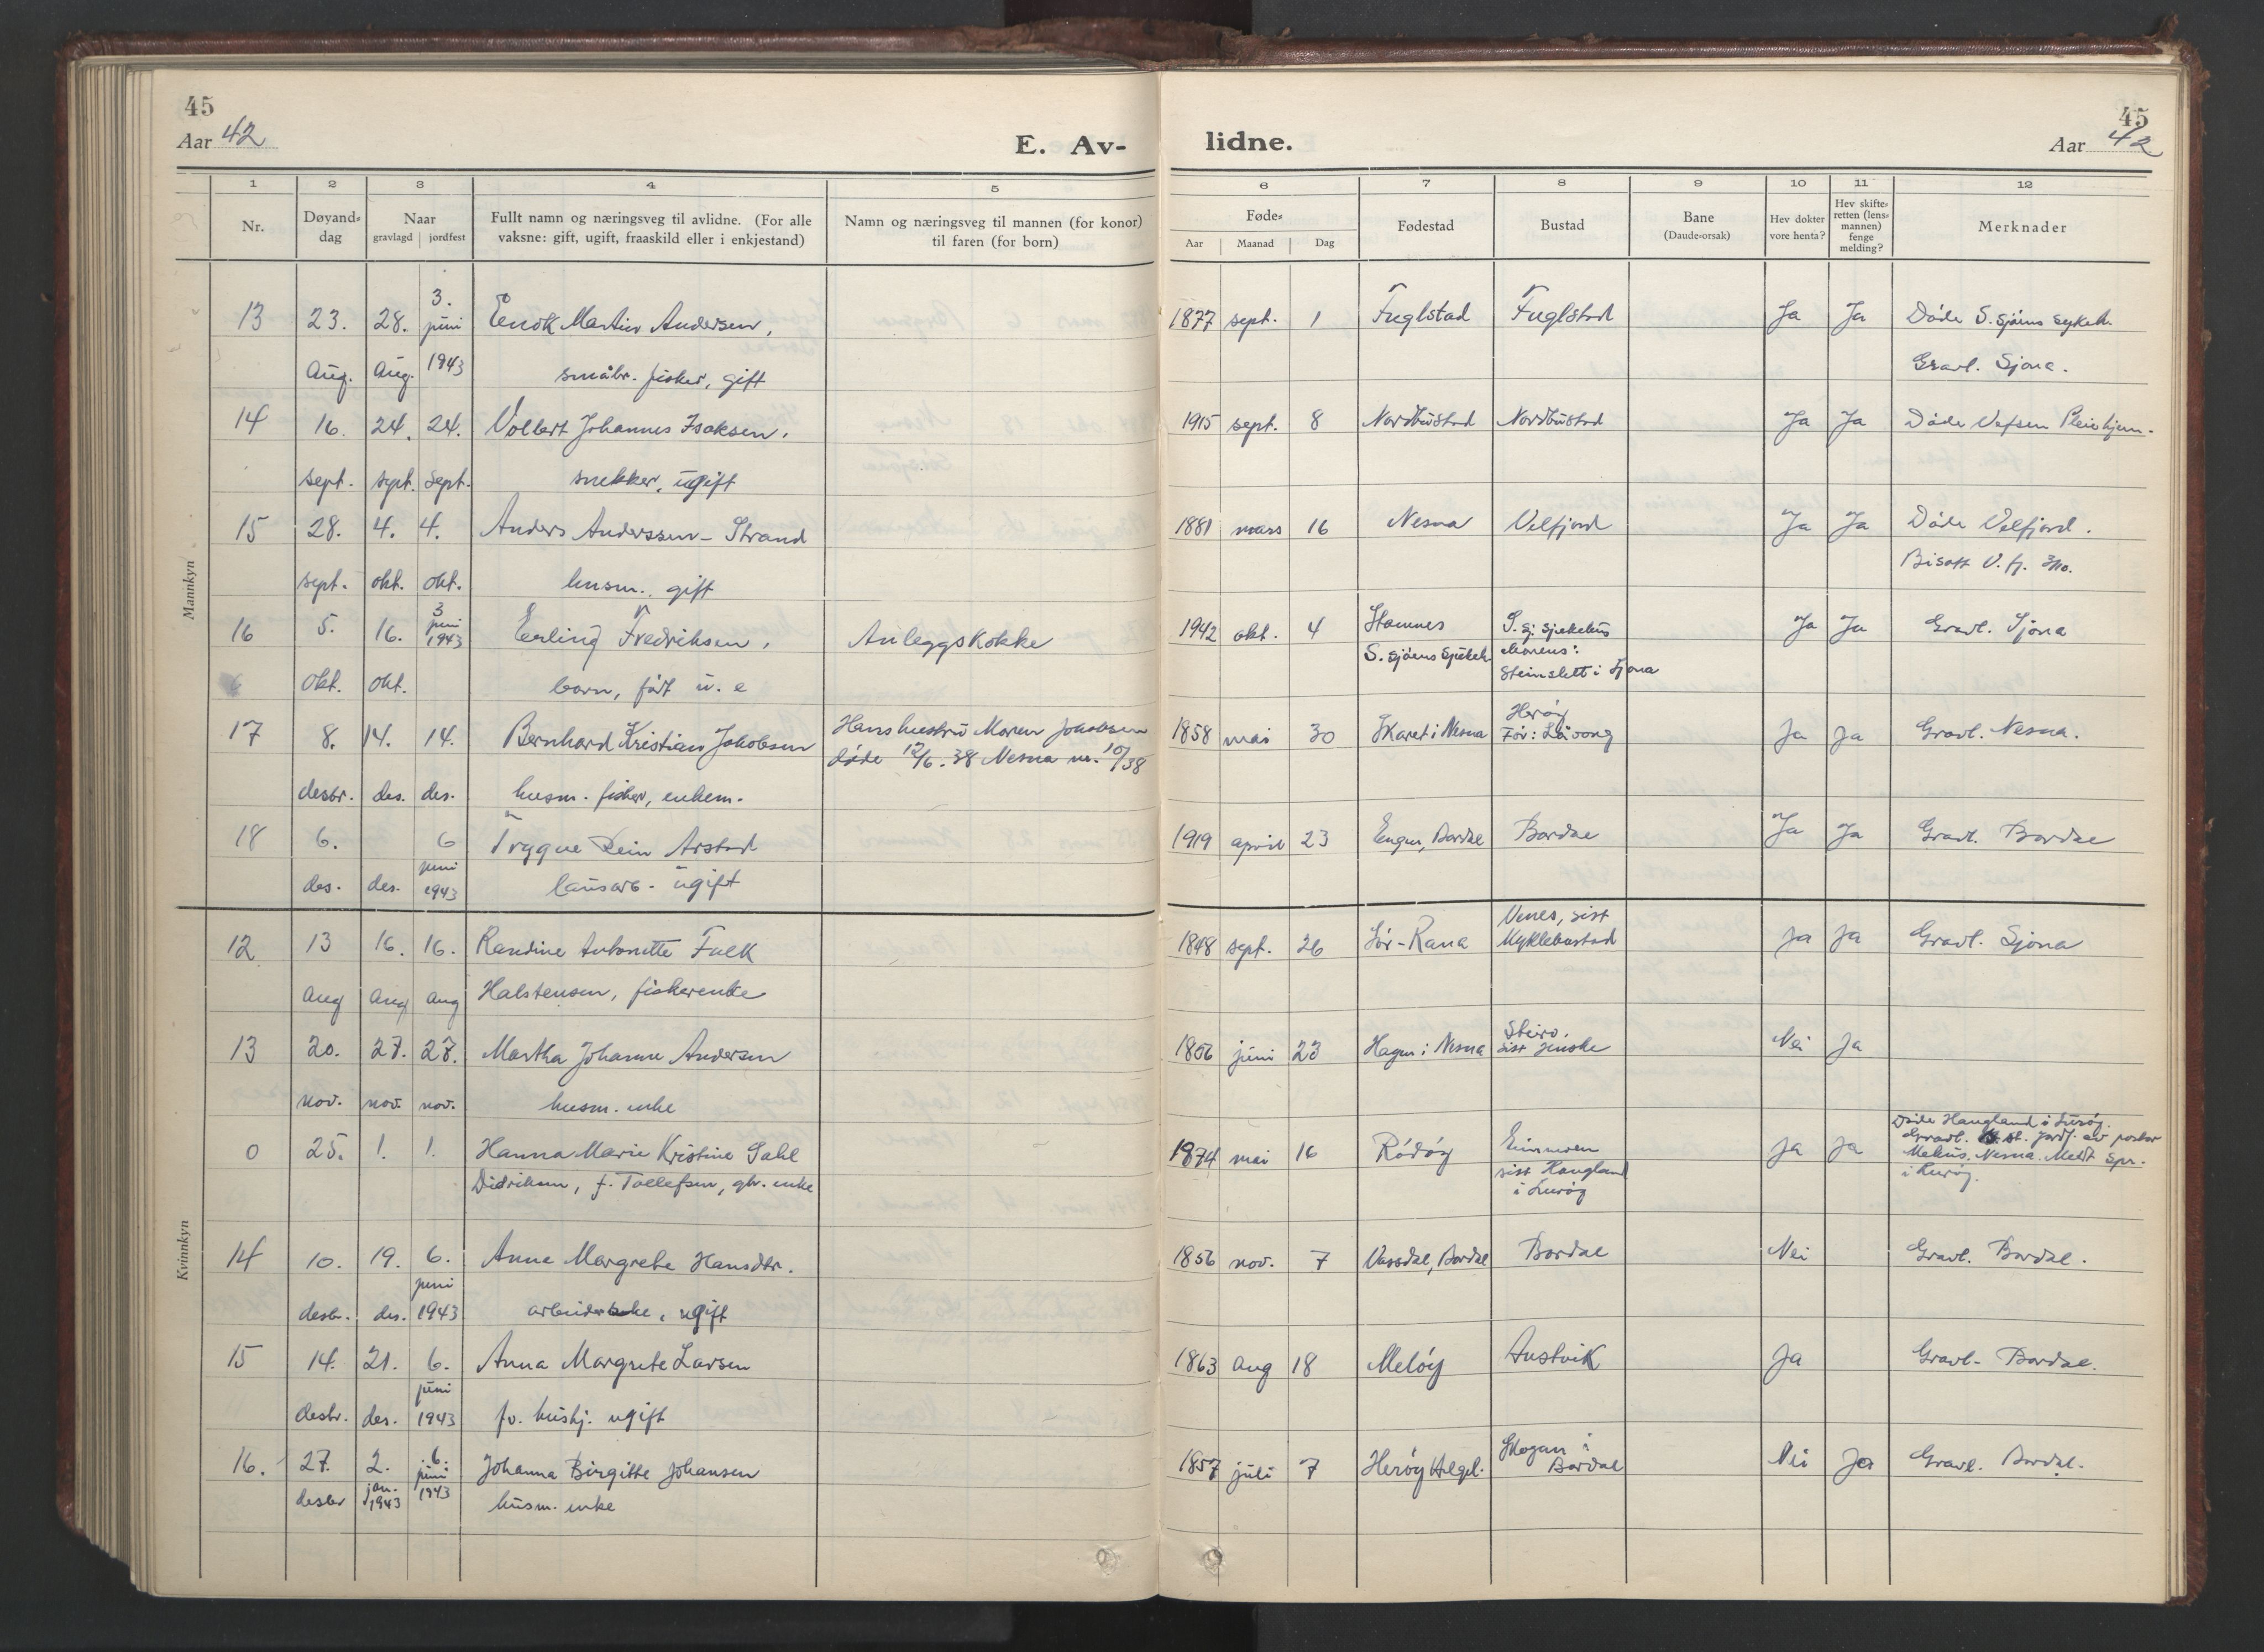 45
Aar 42
E. Av-
lidne.
45
Aar 42
1 2 3 4 5 6 7 8 9 10 11 12
Nr. Døyand-dag Naar gravlagd jordfest Fullt namn og næringsveg til avlidne. (For alle vaksne: gift, ugift, fraaskild eller i enkjestand) Namn og næringsveg til mannen (for konor) til faren (for born)Føde- Aar Maanad Dag Fødestad Bustad Bane (Daude-orsak) Hev dokter vore henta? Hev skifte-retten (lens-mannen) fenge melding? Merknader
Mannkyn
13 23. 28. 3. juni Enok Martin Andersen, 1877 sept. 1 Fuglstad Fuglstad Ja Ja Døde S. Sjøens sykeh.
Aug. Aug. 1943 småbr. fisker, gift Gravl. Sjona.
14 16. 24. 24. Volbert Johannes Isaksen. 1915 sept. 8 Nordbustad Nordbustad Ja Ja Døde Vefsen Pleiehjem.
sept. sept. sept. snekker, ugift
15 28. 4. 4. Anders Anderssen-Strand 1881 mars 16 Nesna Velfjord Ja Ja Døde Velfjord.
sept. okt. okt. husm. gift Bisatt V.fj. 3/10.
16 5. 16. 3 juni 1943 Erling Fredriksen, Anleggskokke 1942 okt. 4 Stamnes S. Sjøens Sjukeh. S. Sj. Sjukehus Morens: Steinslett i Sjona Ja Ja Gravl. Sjona
okt. okt. barn, født u. e
17 8. 14. 14. Bernhard Kristian Jakobsen Hans hustru Maren Jakobsen 1858 mai 30 Skaret i Nesna Herøy Før: Løvong Ja Ja Gravl. Nesna.
døde 12/6. 38 Nesna nr. 10/38
desbr. des. des. husm. fisker, enkem.
18 6. 6 Trygve Rein Arstad 1919 april 23 Engen, Bardal Bardal Ja Ja Gravl. Bardal
des. des. juni 1943 lausarb. ugift
Kvinnkyn
12 13 16. 16. Randine Antonette Falk 1848 sept. 26 Sør-Rana Venes, sist Myklebustad Ja Ja Gravl. Sjona
Aug Aug Aug Halstensen, fiskerenke
13 20. 27. 27. Martha Johanne Andersen 1856 juni 23 Hagen i Nesna Steiro. sist Husby Nei Ja
nov. nov. nov. husm. enke
0 25. 1. 1. Hanna Marie Kristine Dahl 1874 mai 16 Rødøy sist Haugland i Lurøy Ja Ja Døde Haugland i Lurøy.
Didriksen, f. Tollefsen, gbr. enke Nesna. Meldt Spr. i Lurøy.
14 10. 19. 6. Anne Margrete Hansdtr. 1856 nov. 7 Vassdal, Bardal Bardal Nei Gravl. Bardal.
desbr. des. juni 1943 ugift
15 14. 21. 6. Anna Margrete Larsen 1863 Aug 18 Meløy Austvik Ja Gravl. Bardal.
desbr. des. juni 1943 fv. hushj. ugift
16. 27. 2. 6. Johanna Birgitte Johansen 1857 juli 7 Herøy Helgel. Skogan i Bardal Nei Ja Gravl. Bardal.
desbr jan. 1943 juni 1943 husm. enke